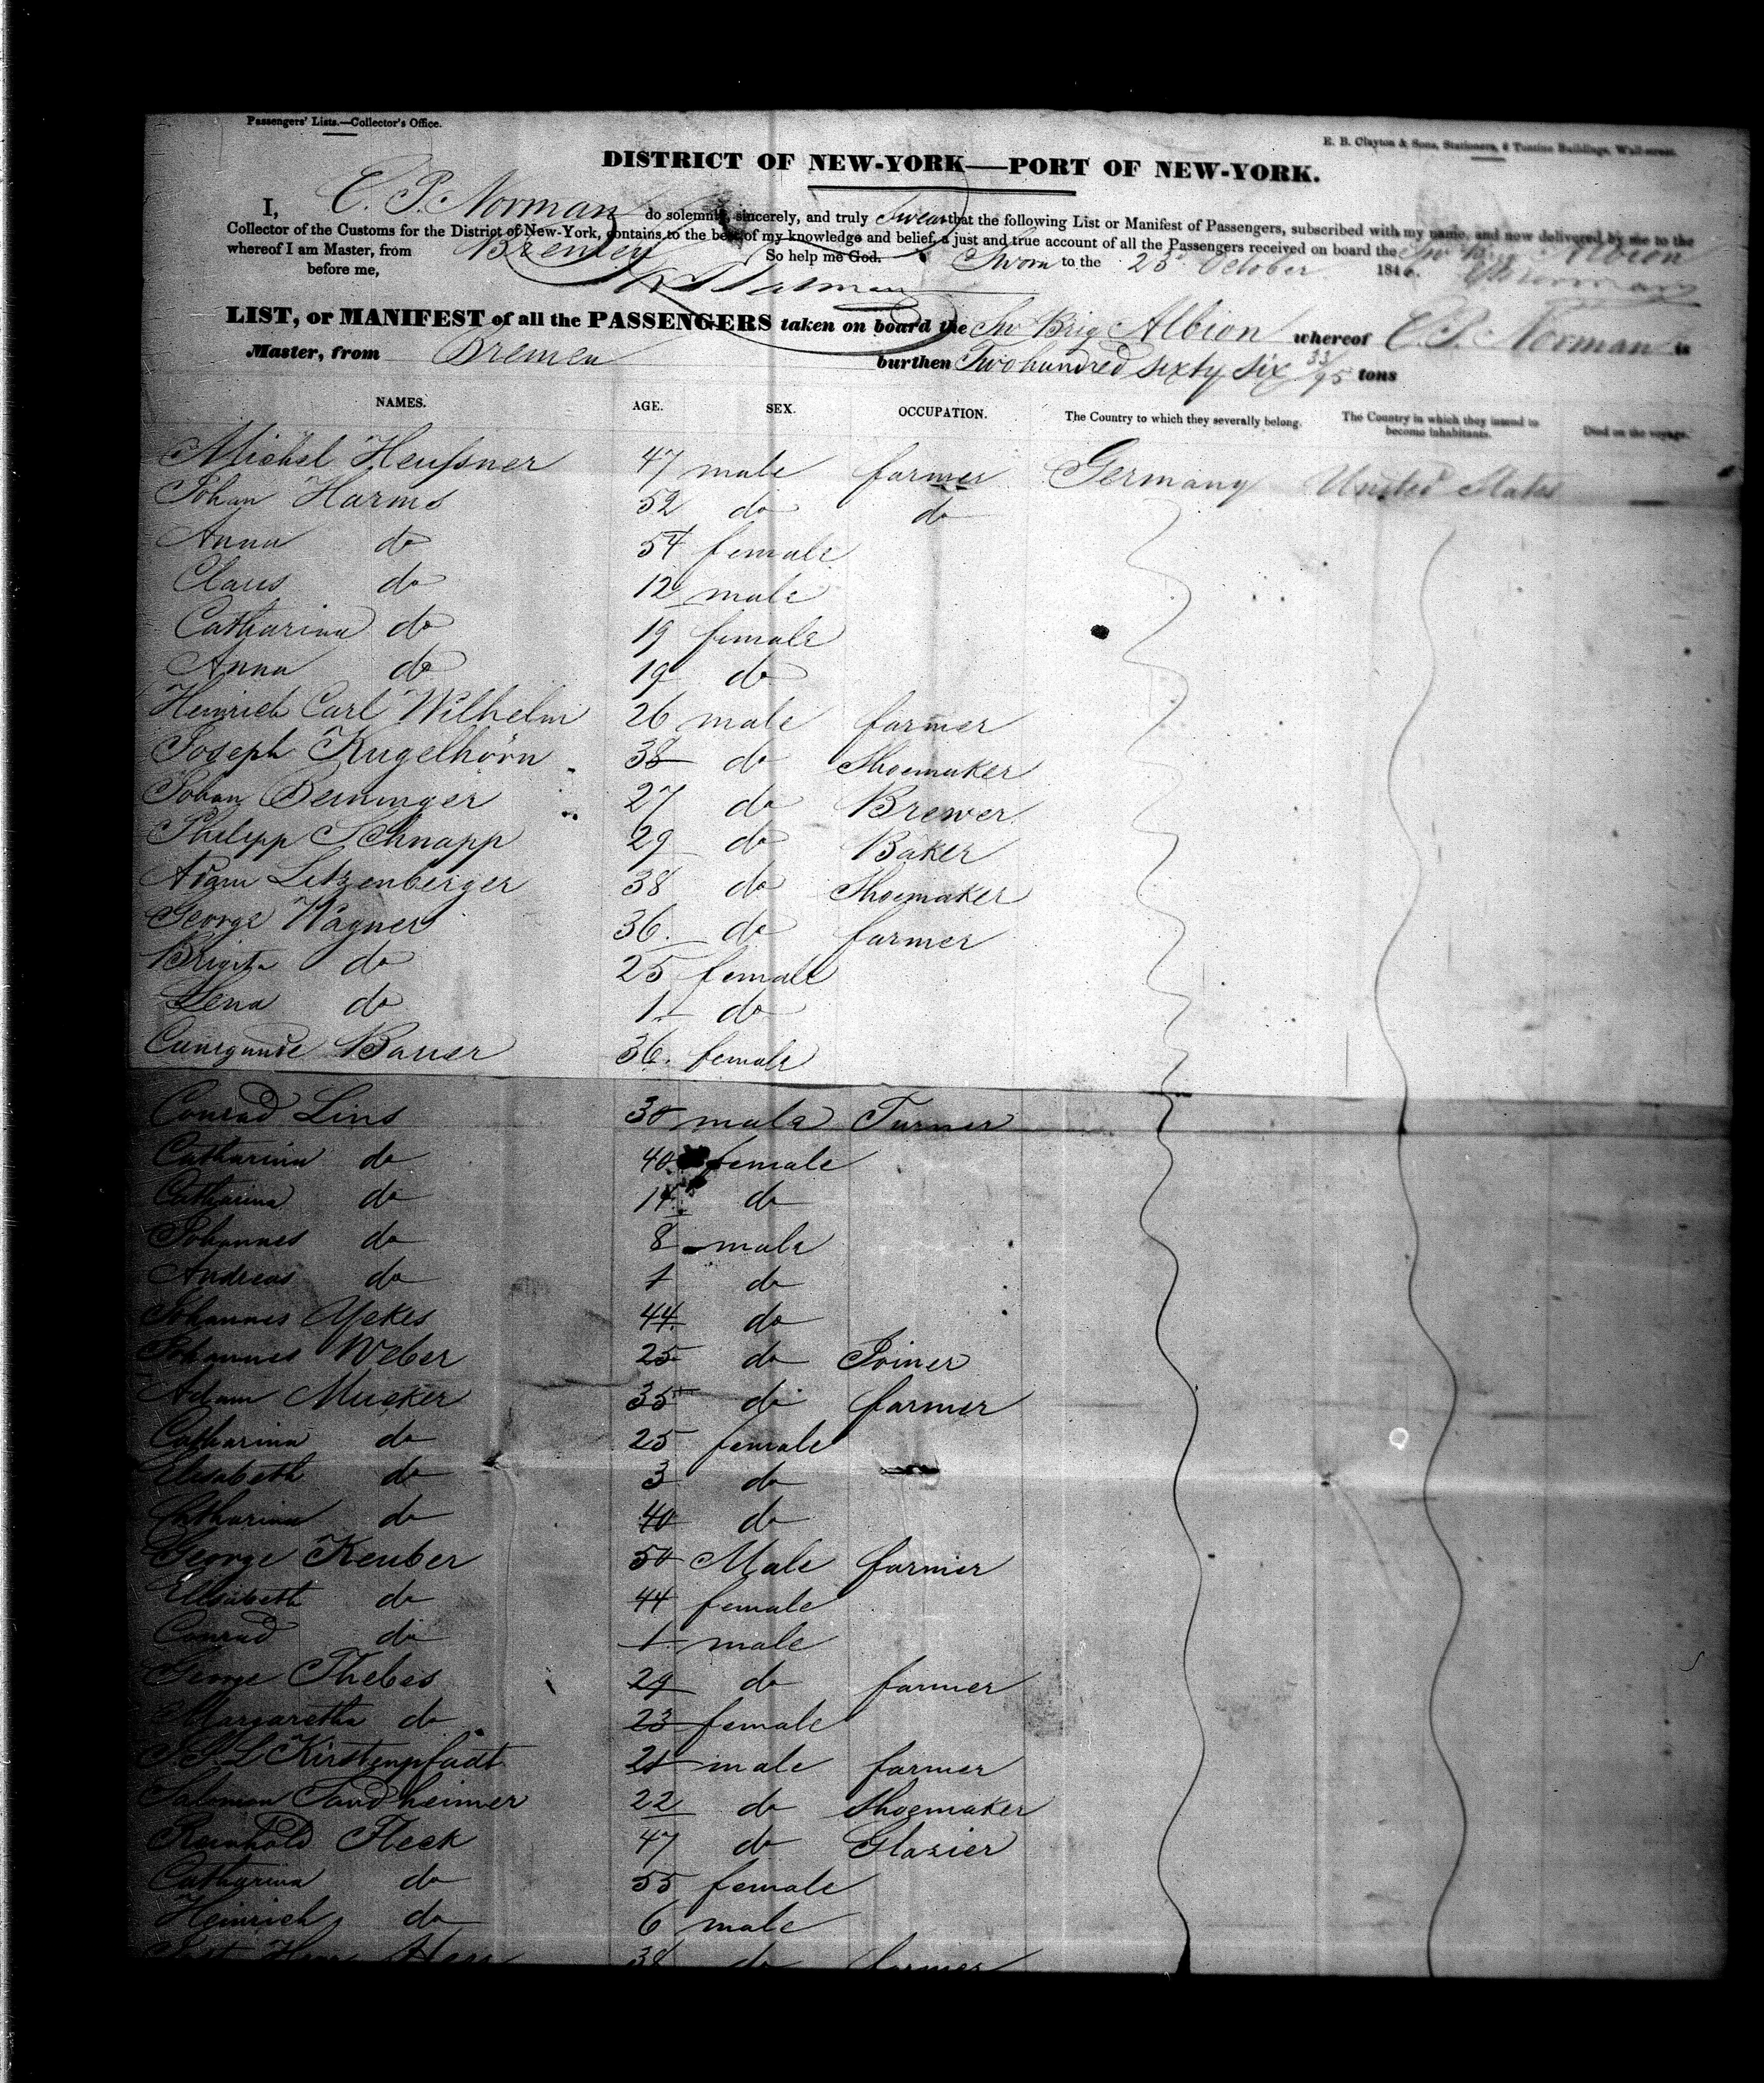 Passengers' Lists.—Collector's Office.
E. B. Clayton & Sons, Stationers, Tontine Buildings, Wall-street.
DISTRICT OF NEW-YORK—PORT OF NEW-YORK.
I, C. P. Norman do solemnly, sincerely, and truly Swear that the following List or Manifest of Passengers, subscribed with my name, and now delivered by me to the
Collector of the Customs for the District of New-York, contains to the best of my knowledge and belief, a just and true account of all the Passengers received on board the Sw B. Albion
whereof I am Master, from Bremen So help me God. Sworn to the 23 October 1846.
before me,
LIST, or MANIFEST of all the PASSENGERS taken on board the Sw Brig Albion whereof C. P. Norman is
Master, from Bremen burthen Two hundred sixty six 33/95 tons
NAMES. AGE. SEX. OCCUPATION. The Country to which they severally belong. The Country in which they intend to become inhabitants. Died on the voyage.
Michel Heussner 47 male farmer Germany United States
Johan Harms 52 do do
Anna do 54 female
Claus do 12 male
Catharina do 19 female
Anna do 19 do
Heinrich Carl Wilhelm 26 male farmer
Joseph Kugelhörn 38 do Shoemaker
Johan Deininger 27 do Brewer
Philipp Schnapp 29 do Baker
Adam Litzenberger 38 do Shoemaker
George Wagner 36. do farmer
Brigita do 25 female
Lena do 1 do
Cunegunde Bauer 36. female
Conrad Lins 30 male Turner
Catharina do 40 female
Catharina do 14 do
Johannes do 8 male
Andreas do 1 do
Johannes Yekes 44 do
Johannes Weber 25 do Joiner
Adam Mucker 35 do farmer
Catharina do 25 female
Elisabeth do 3 do
Catharina do 40 do
George Keuber 50 Male farmer
Elisabeth do 44 female
Conrad do 1 male
George Thebes 29 do farmer
Margaretha do 23 female
Kirstenpfadt 21 male farmer
Salomon Sandheimer 22 do Shoemaker
Reinhold Fleck 47 do Glazier
Catharina do 55 female
Heinrich do 6 male
38 do farmer